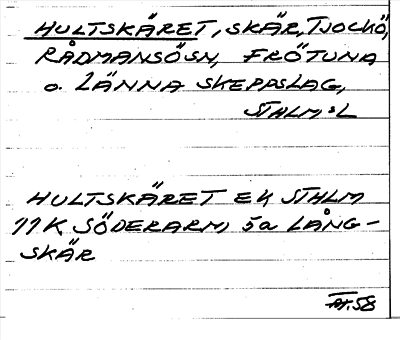 HULTSKÄRET, SKÄR, TJOCKÖ,
RÅDMANSÖSN, FRÖTUNA
o. LÄNNA SKEPPSLAG,
STHLM:L
HULTSKÄRET EK STHLM
11K SÖDERARM, 5a LÅNG-
SKÄR